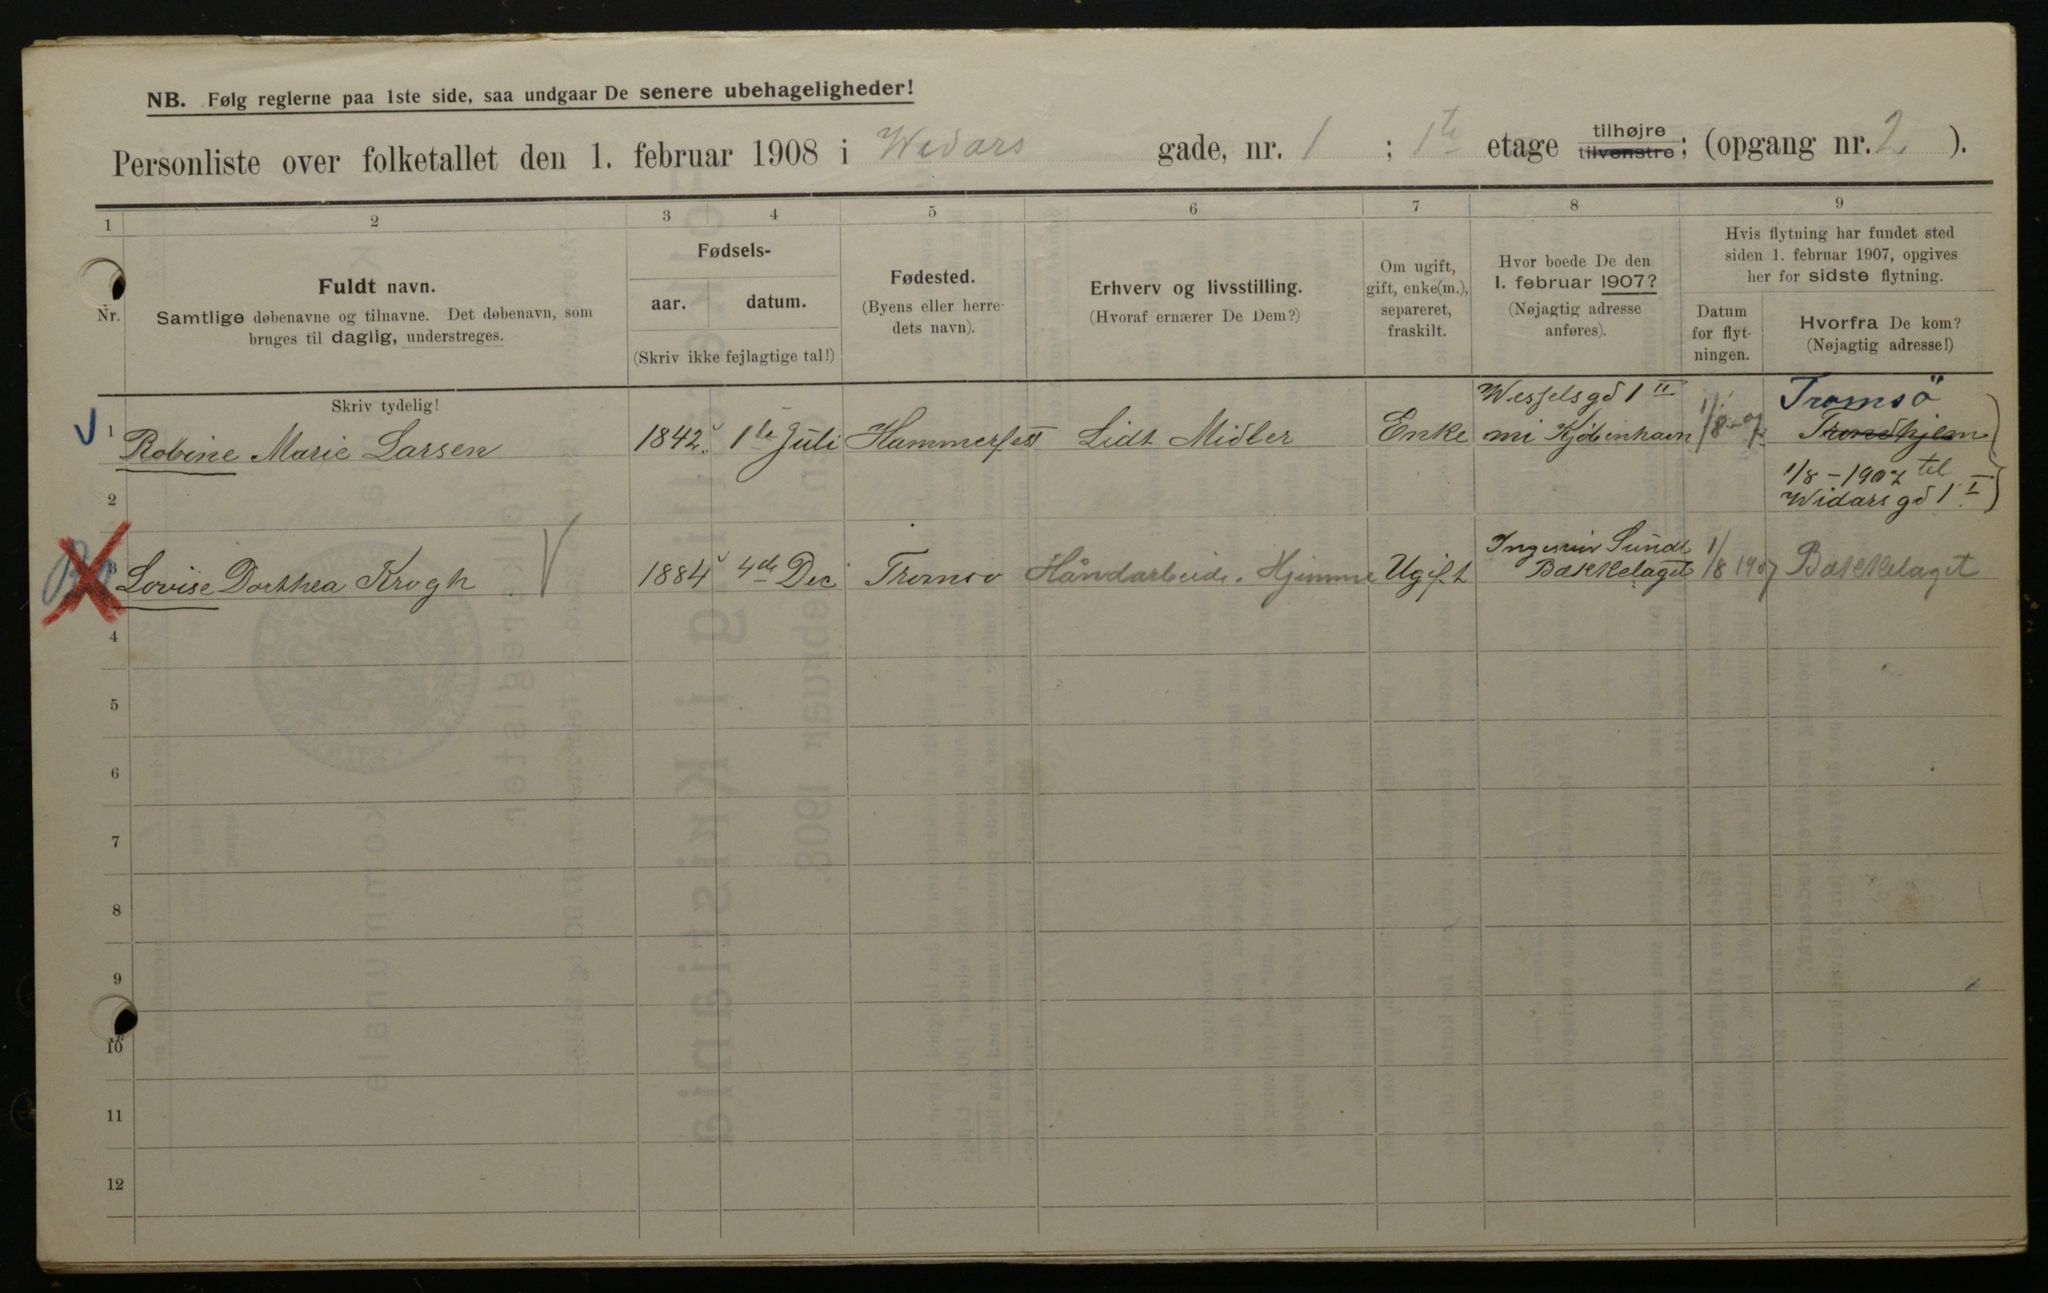 NB. Følg reglerne paa 1ste side, saa undgaar De senere ubehageligheder!
Personliste over folketallet den 1. februar 1908 i Widars gade, nr. 1 ; 1te etage tilhøjre tilvenstre; (opgang nr. 2 ).
1 2 3 4 5 6 7 8 9
Nr.
Fuldt navn.
Samtlige døbenavne og tilnavne. Det døbenavn, som
bruges til daglig, understreges.
Skriv tydelig!
Fødsels-
aar. datum.
(Skriv ikke fejlagtige tal!)
Fødested.
(Byens eller herre-
dets navn).
Erhverv og livsstilling.
(Hvoraf ernærer De Dem?)
Om ugift,
gift, enke(m.),
separeret,
fraskilt.
Hvor boede De den
1. februar 1907?
(Nøjagtig adresse
anføres).
Hvis flytning har fundet sted
siden 1. februar 1907, opgives
her for sidste flytning.
Datum
for flyt-
ningen.
Hvorfra De kom?
(Nøjagtig adresse!)
Wesselsgd 1 II Tromsö
1 Robine Marie Larsen 1842 1te Juli Hammerfest Lidt Midler Enke mi Kjøbenhavn 1/8-07 Trondhjem
1/8-1907 til
2 Widarsgd 1 I
Ingeniør Sundt
3 Lovise Dorthea Krogh 1884 4de Dec Tromso Håndarbeide. Hjemme Ugift Bækkelaget 1/8 1907 Bækkelaget
4
5
6
7
8
9
10
11
12